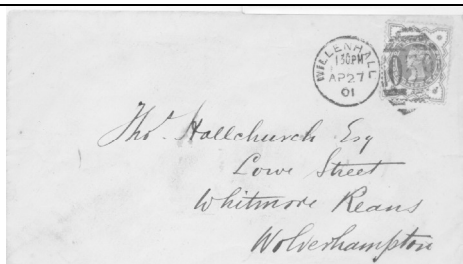 WILLENHALL
1 30PM
AP 27
01
Thos. Hallchurch Esq
Lowe Street
Whitmore Reans
Wolverhampton